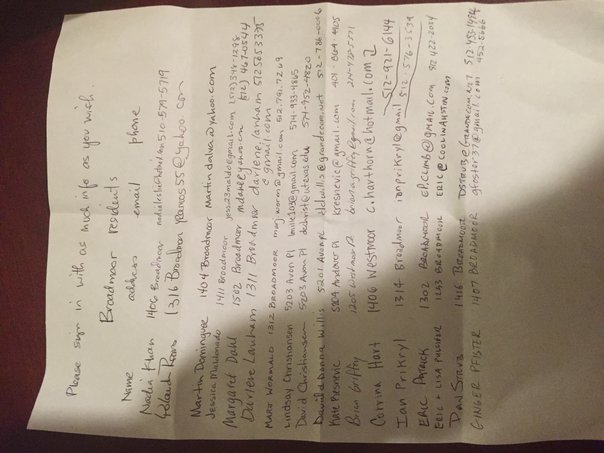 Please sign in with as much info as you wish.
Broadmoor residents
Name address email phone
Nadia Khan 1406 Broadmoor 510-579-5719
1316 Broadmoor
Martin Dominguez 1404 Broadmoor Martindalva@yahoo.com
Jessica Maldonado 1411 Broadmoor yessi23maldo@gmail.com (512) 348-1298
Margaret Dahl 1502 Broadmoor (512) 467-0544
Darlene Lanham 1311 Broadmoor darlene.lanham 5126533395
@gmail.com
MARY WORMALD 1312 BROADMOOR mary.worm@gmail.com 512.791.7269
Lindsay Christiansen 5203 Avon Pl lmile103@gmail.com 574-933-4865
David Christiansen 5203 Avon Pl dchrist@utexas.edu 574-952-4820
David & Donna Willis 5201 Avon Pl dldwillis@grandecom.net 512-786-0006
Kate Resnevic kresnevic@gmail.com 401-864-4905
Brian Griffey 1205 Westmoor briandgriffey@gmail.com
Corrina Hart 1406 Westmoor c.harthorn@hotmail.com
512-921-6144
Ian Prikryl 1314 Broadmoor ianprikryl@gmail 512-576-3539
ERIC PATRICK 1302 BROADMOOR ep.climb@gmail.com 512 422-2054
ERIC + LISA 1253 BROADMOOR ERIC@COOLINAUSTIN.COM
DAN 1416 BROADMOOR 512 453-1494
GINGER PFISTER 1407 BROADMOOR gfister37@gmail.com 452-5666